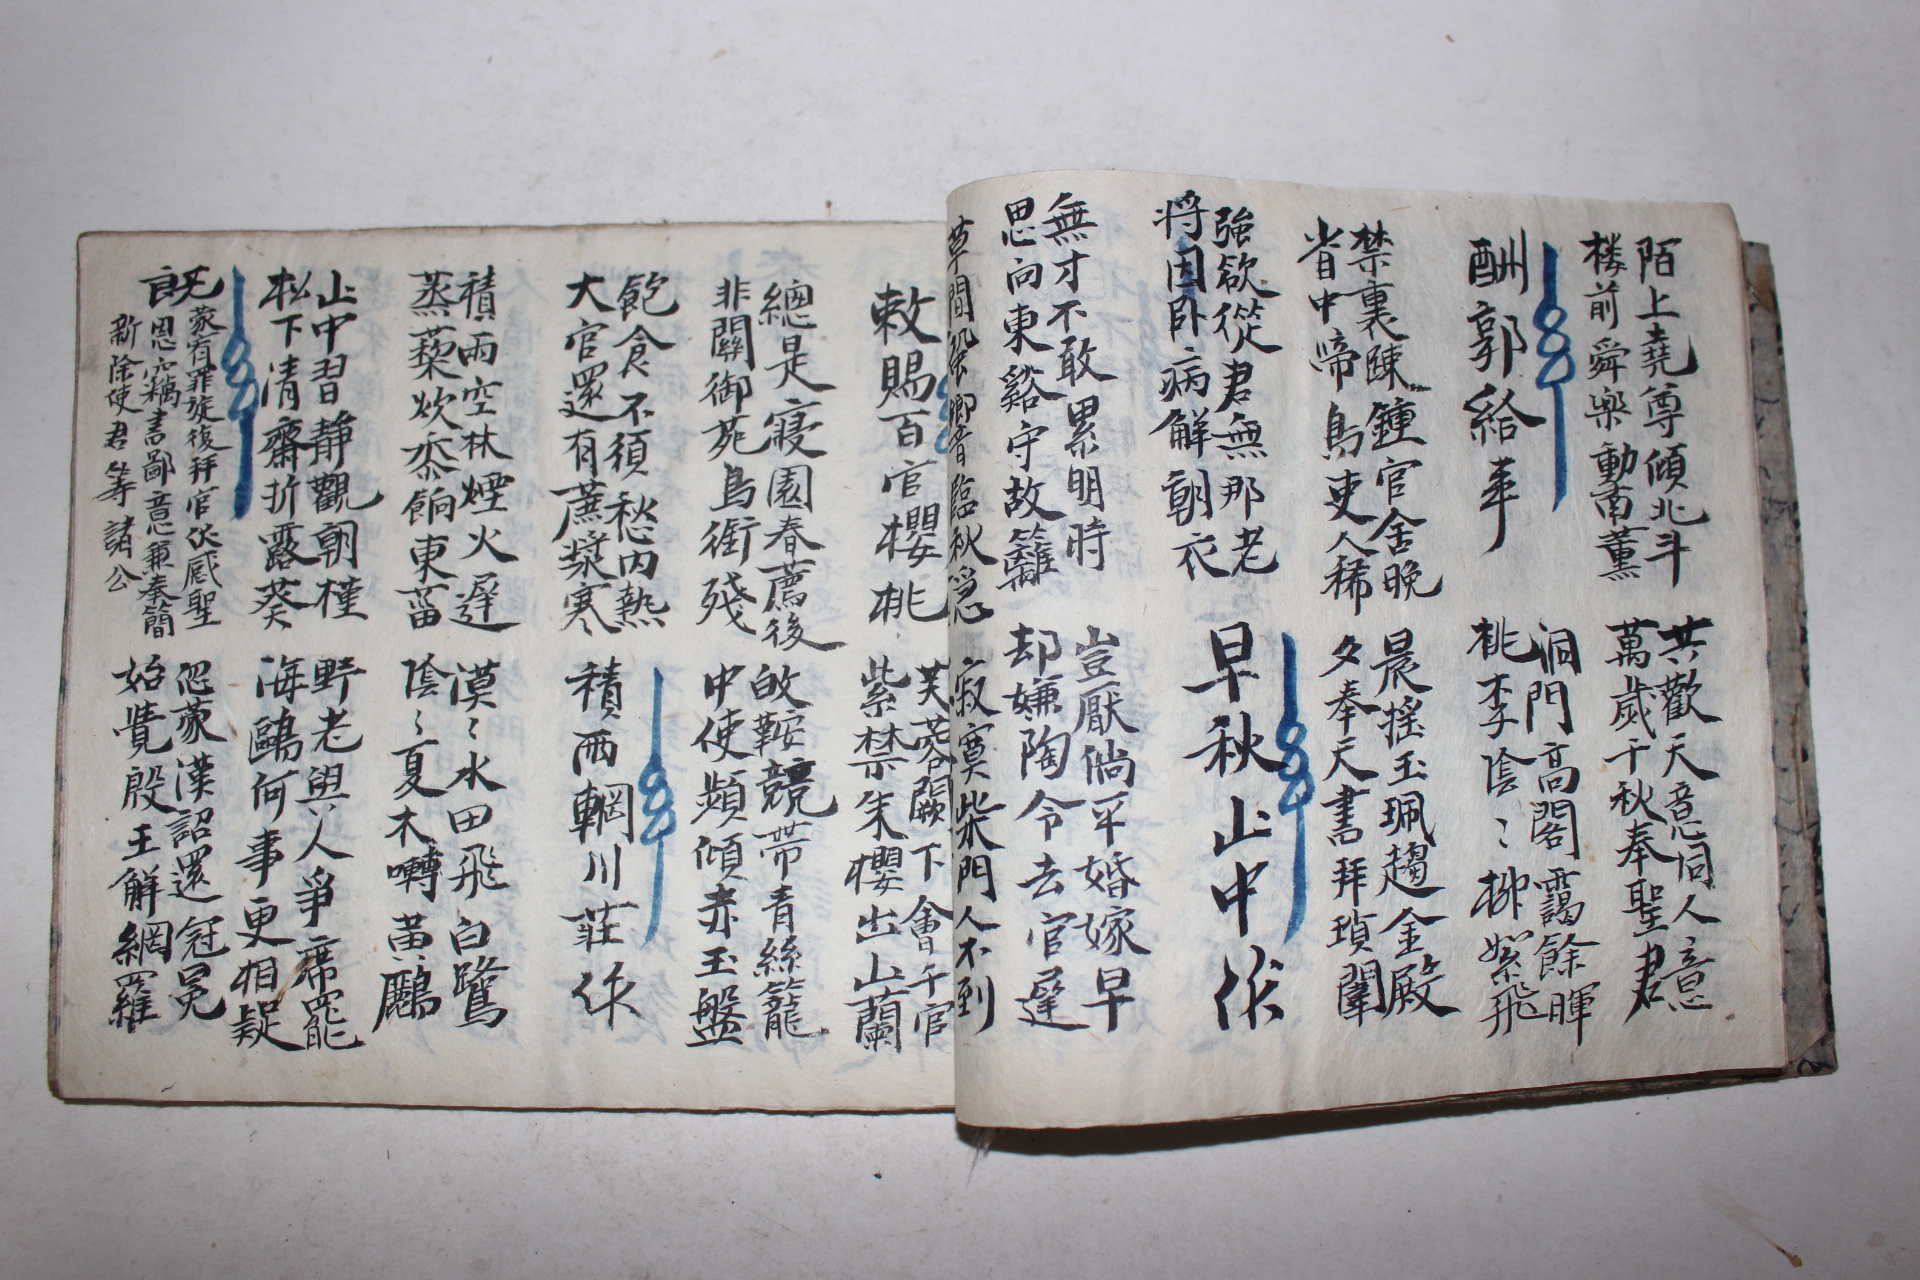 陌上堯尊傾北斗
楼前舜樂動南薰
共歡天意同人意
萬歲千秋奉聖君
酬郭給事
洞門高閣靄餘暉
桃李陰〻柳絮飛
禁裏踈鍾官舍晚
省中啼鳥吏人稀
晨搖玉珮趨金殿
夕奉天書拜瑣闈
強欲從君無那老
將因卧病解朝衣
早秋山中作
無才不敢累明時
思向東谿守故籬
豈厭倘平婚嫁早
却嫌陶令去官遲
草間蛩響臨秋急
寂寞柴門人不到
敕賜百官櫻桃
芙蓉闕下會千官
紫禁朱櫻出山蘭
總是寢園春薦後
非關御苑鳥銜殘
皈鞍競帶青絲籠
中使頻傾赤玉盤
飽食不須愁內熱
大官還有蔗漿寒
積雨輞川莊作
積雨空林煙火遲
蒸藜炊黍餉東菑
漠〻水田飛白鷺
陰〻夏木囀黃鸝
山中習靜觀朝槿
松下清齋折露葵
野老與人爭席罷
海鷗何事更相疑
既蒙宥罪旋復拜官伏感聖
恩竊書鄙意兼奉簡
新除使君等諸公
忽蒙漢詔還冠冕
始覺殷王解網羅